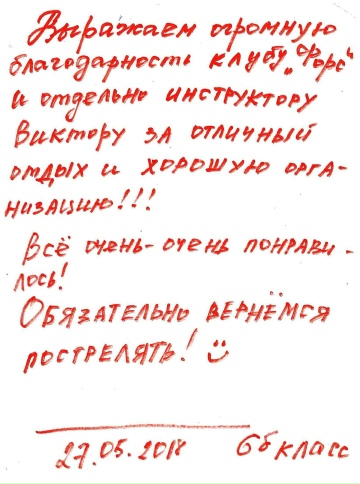 Выражаем огромную
благодарность клубу „Форс“
и отдельно инструктору
Виктору за отличный
отдых и хорошую орга-
низацию!!!
Всё очень-очень понрави-
лось!
Обязательно вернёмся
пострелять! ☺
27.05.2018 6б класс